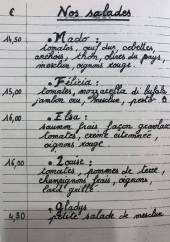 € Nos salades
14,50 • Mado :
tomates, œuf dur, cebettes,
anchois, thon, olives du pays,
mesclun, oignons rouge.
• Félicia :
15,00 tomates, mozzarella di bufala
jambon cru, mesclun, pesto
16,00 • Elsa :
saumon frais façon gravlax
tomates, crème citronnée,
oignons rouge
16,00 • Louise :
tomates, pommes de terre,
champignons frais, oignons,
lard grillé
• Gladys
4,50 petite salade de mesclun